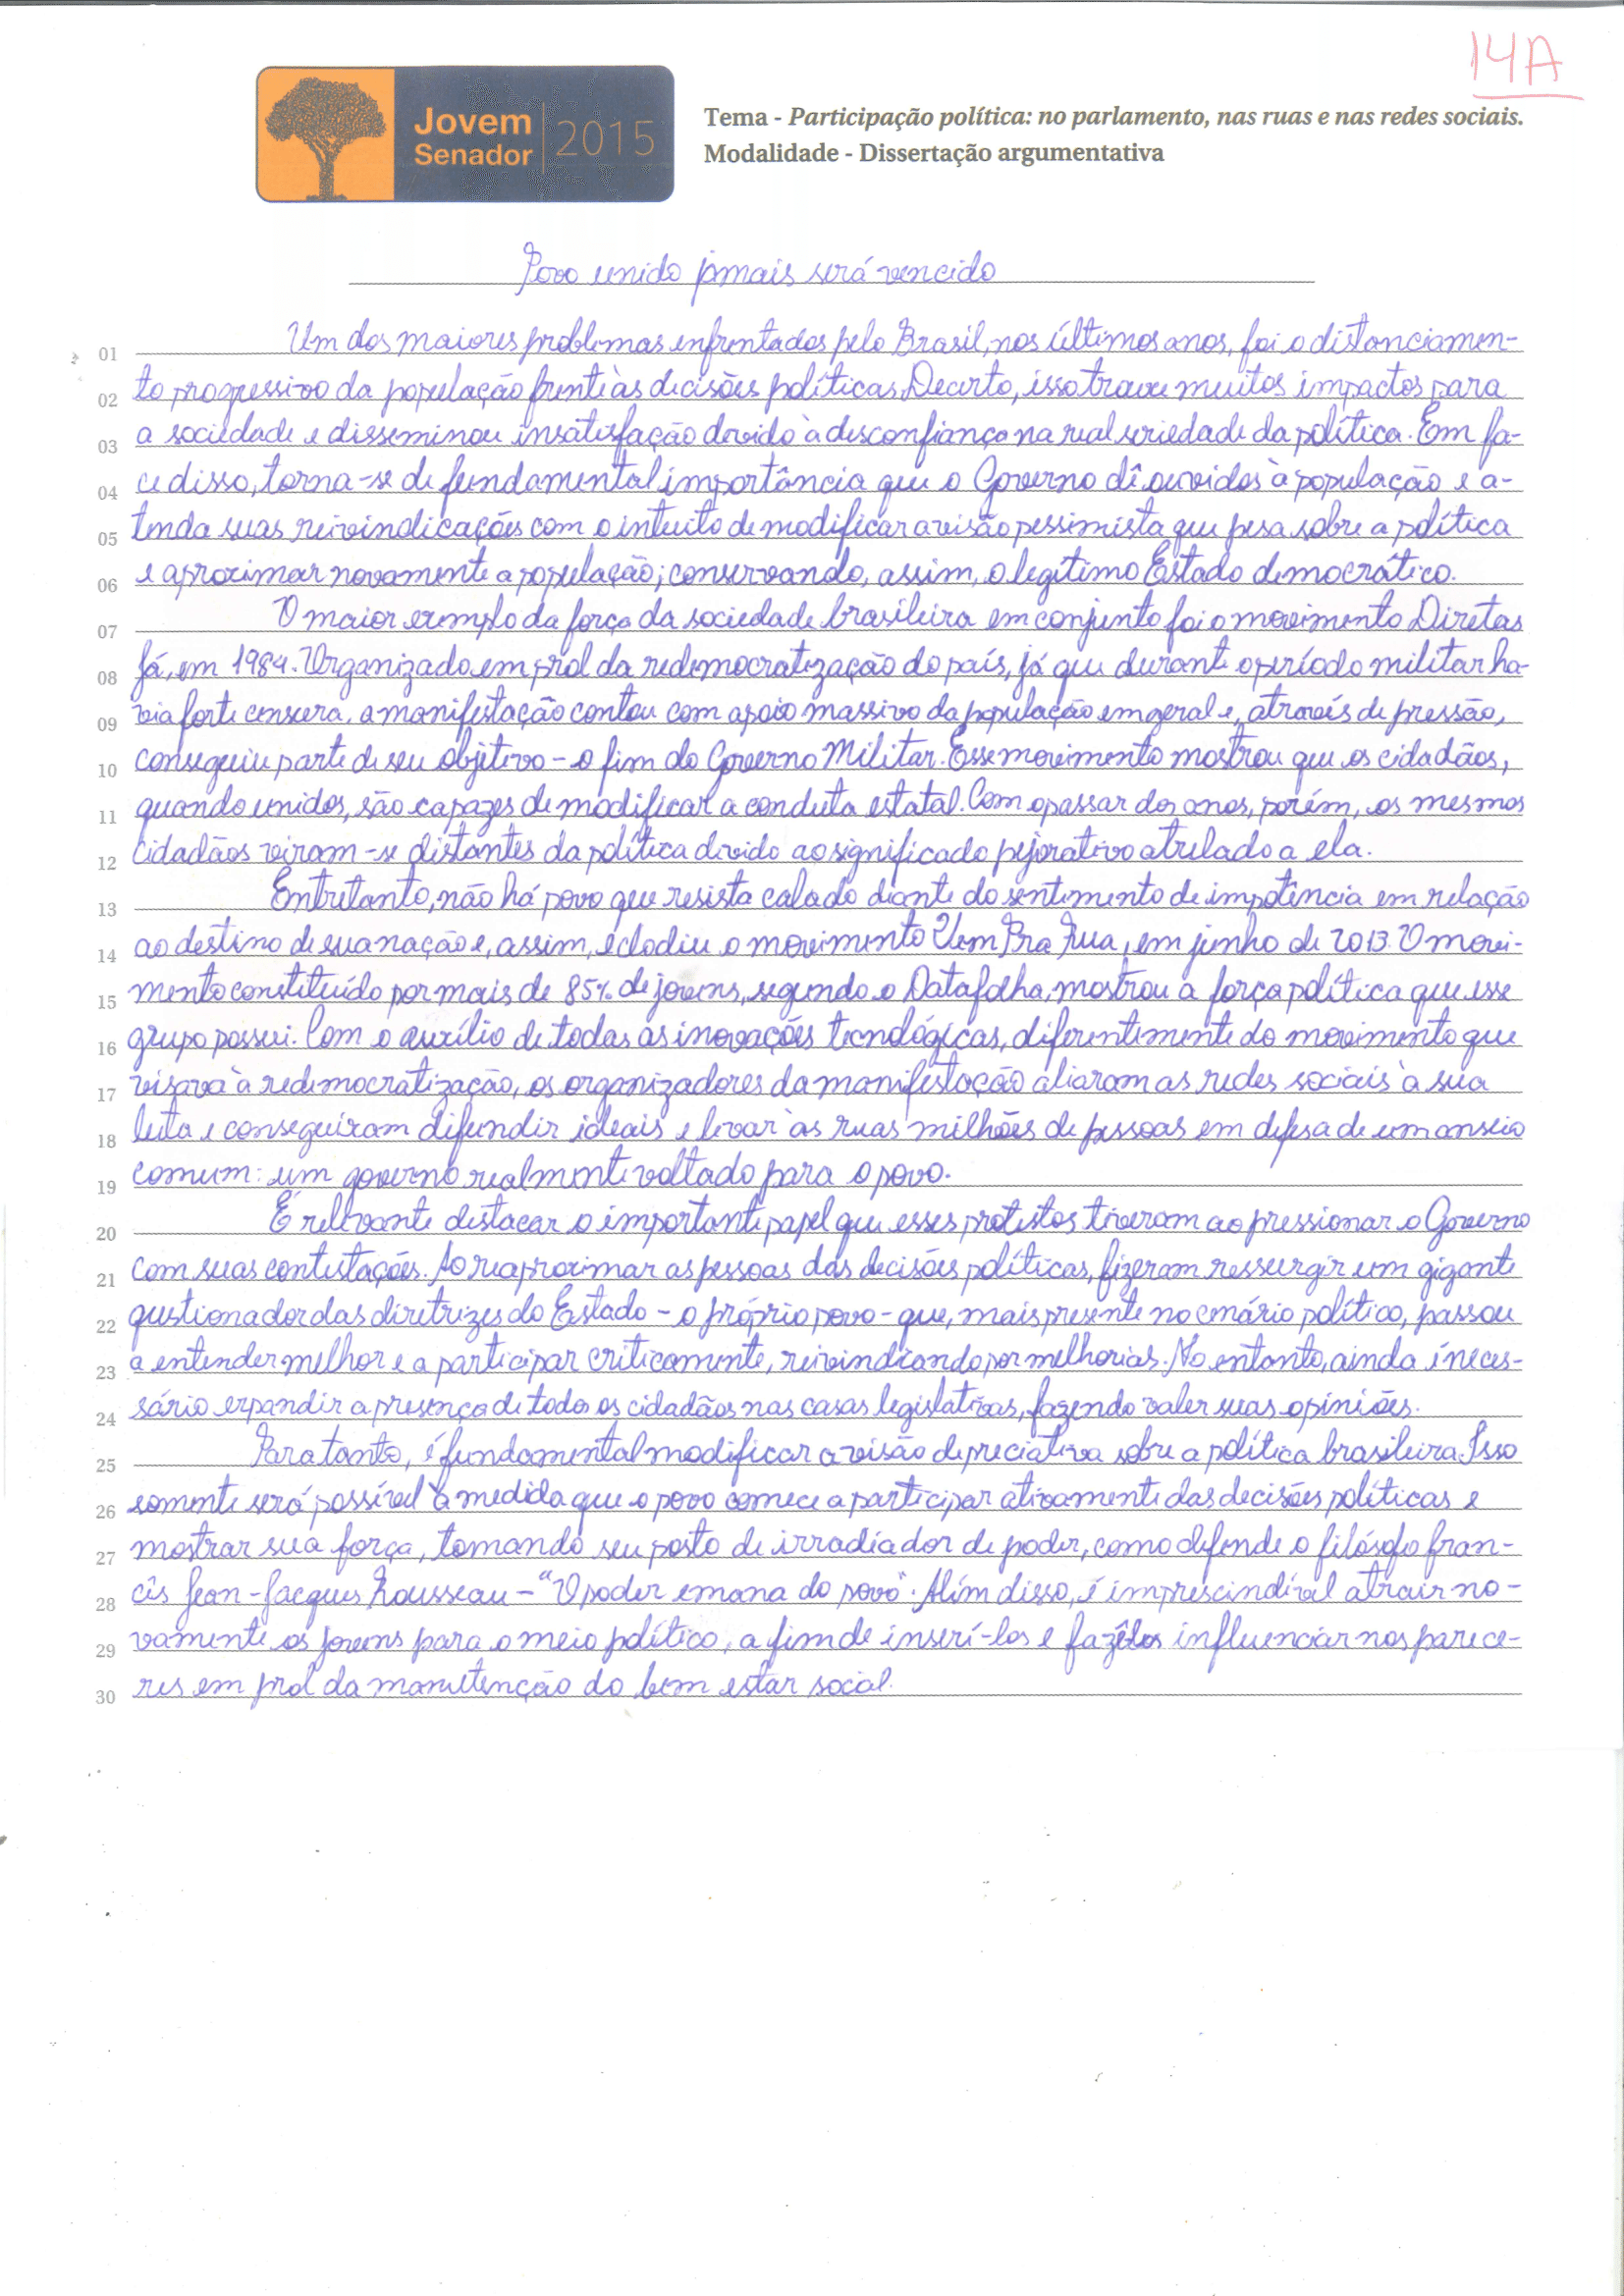 14A
Jovem
Senador
2015
Tema - Participação política: no parlamento, nas ruas e nas redes sociais.
Modalidade - Dissertação argumentativa
Povo unido jamais será vencido
01 Um dos maiores problemas enfrentados pelo Brasil, nos últimos anos, foi o distanciamen-
02 to progressivo da população frente às decisões políticas. Decerto, isso trouxe muitos impactos para
03 a sociedade e disseminou insatisfação devido à desconfiança na real seriedade da política. Em fa-
04 ce disso, torna-se de fundamental importância que o Governo dê ouvidos à população e a-
05 tenda suas reivindicações com o intuito de modificar a visão pessimista que pesa sobre a política
06 e aproximar novamente a população; conservando, assim, o legítimo Estado democrático.
07 O maior exemplo da força da sociedade brasileira em conjunto foi o movimento Diretas
08 Já, em 1984. Organizado em prol da redemocratização do país, já que durante o período militar ha-
09 via forte censura, a manifestação contou com apoio massivo da população em geral e, através de pressão,
10 conseguiu parte de seu objetivo - o fim do Governo Militar. Esse movimento mostrou que os cidadãos,
11 quando unidos, são capazes de modificar a conduta estatal. Com o passar dos anos, porém, os mesmos
12 cidadãos viram-se distantes da política devido ao significado pejorativo atrelado a ela.
13 Entretanto, não há povo que resista calado diante do sentimento de impotência em relação
14 ao destino de sua nação e, assim, eclodiu o movimento Vem Pra Rua, em junho de 2013. O movi-
15 mento constituído por mais de 85% de jovens, segundo o Datafolha, mostrou a força política que esse
16 grupo possui. Com o auxílio de todas as inovações tecnológicas, diferentemente do movimento que
17 visava à redemocratização, os organizadores da manifestação aliaram as redes sociais à sua
18 luta e conseguiram difundir ideais e levar às ruas milhões de pessoas em defesa de um anseio
19 comum: um governo realmente voltado para o povo.
20 É relevante destacar o importante papel que esses protestos tiveram ao pressionar o Governo
21 com suas contestações. Ao reaproximar as pessoas das decisões políticas, fizeram ressurgir um gigante
22 questionador das diretrizes do Estado - o próprio povo - que, mais presente no cenário político, passou
23 a entender melhor e a participar criticamente, reivindicando por melhorias. No entanto, ainda é neces-
24 sário expandir a presença de todos os cidadãos nas casas legislativas, fazendo valer suas opiniões.
25 Para tanto, é fundamental modificar a visão depreciativa sobre a política brasileira. Isso
26 somente será possível à medida que o povo comece a participar ativamente das decisões políticas e
27 mostrar sua força, tomando seu posto de irradiador de poder, como defende o filósofo fran-
28 cês Jean-Jacques Rousseau - "O poder emana do povo". Além disso, é imprescindível atrair no-
29 vamente os jovens para o meio político, a fim de inserí-los e fazê-los influenciar nos parece-
30 res em prol da manutenção do bem estar social.